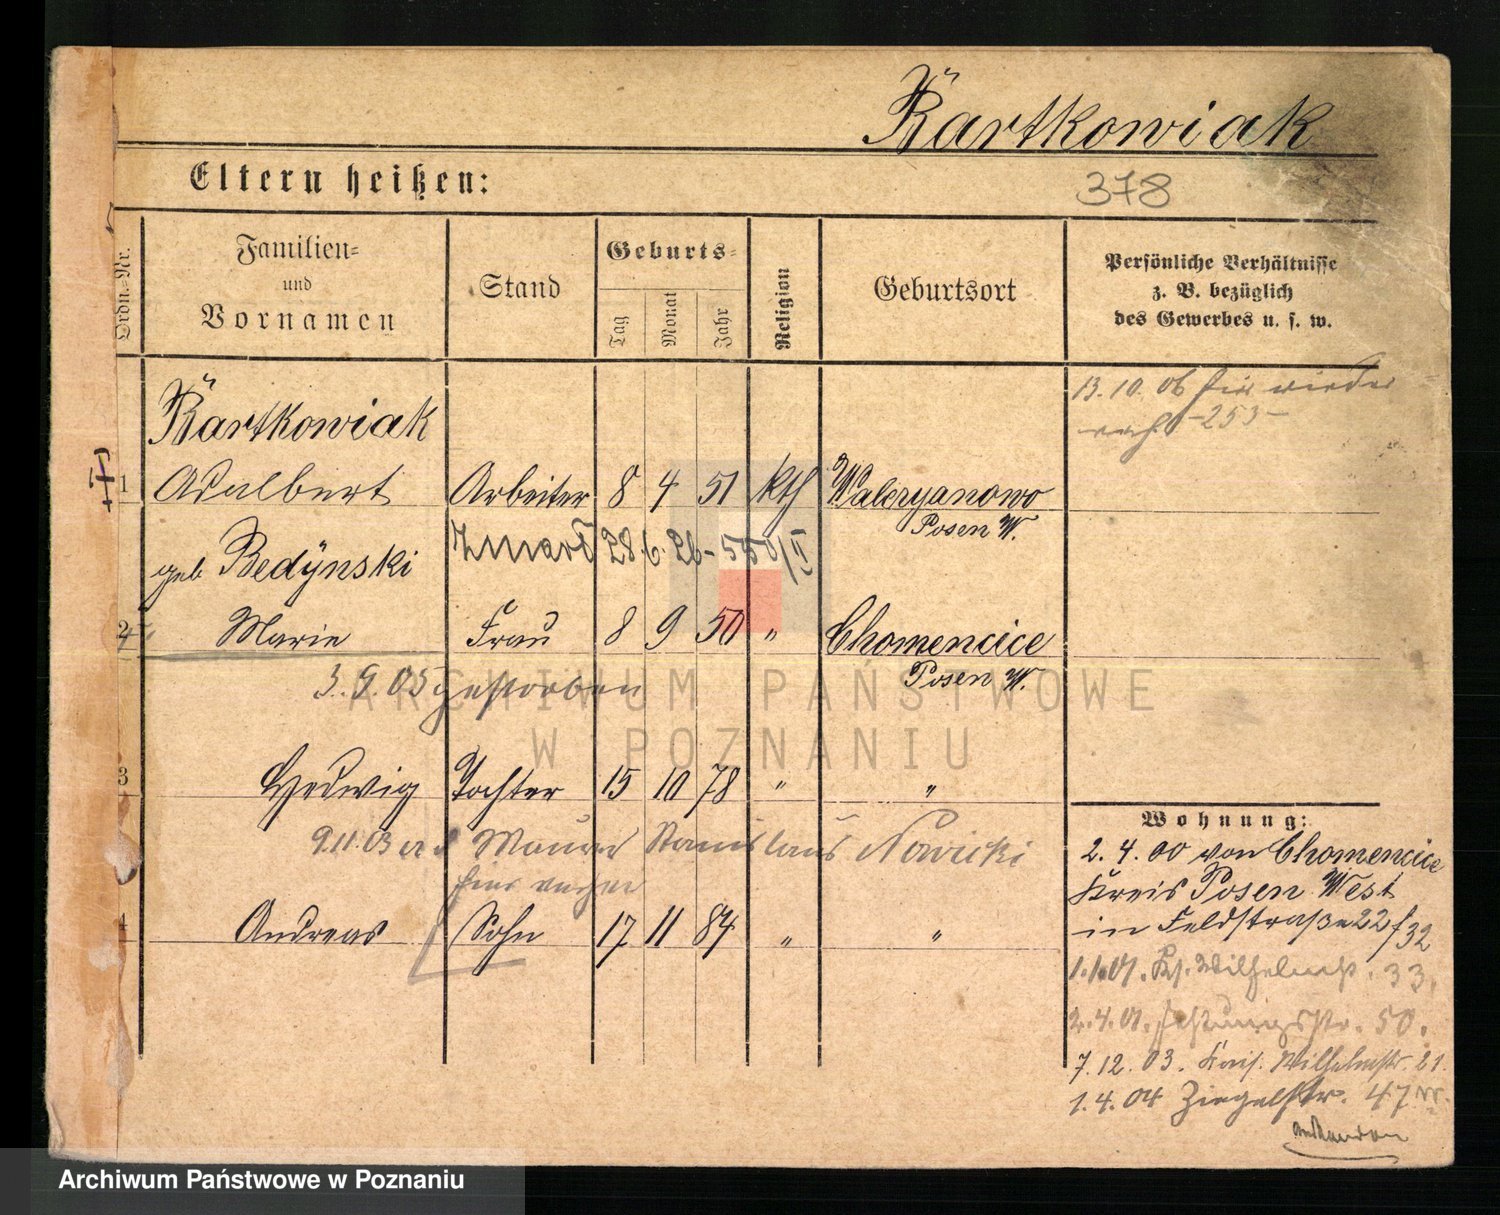 Bartkowiak
Eltern heißen:
378
Ordn.-Nr.
Familien-
und
Vornamen
Stand
Geburts-
Tag
Monat
Jahr
Religion
Geburtsort
Persönliche Verhältnisse
z. B. bezüglich
des Gewerbes u. s. w.
13. 10. 06 hier wieder
-253-
Bartkowiak
1 Adalbert Arbeiter 8 4 51 kth Waleryanowo
Posen W.
zmarł 28.6.26 - 550/II
geb Bedÿnski
2 Marie Frau 8 9 50 " Chomencice
Posen W.
3.9.05 gestorben
3 Hedwig Tochter 15 10 78 " "
9.11.03 Maurer Stanislaus Nowicki
hier
4 Andreas Sohn 17 11 84 " "
Wohnung:
2. 4. 00 von Chomencice
Kreis Posen West
in Feldstraße 22/32
1.1.01. Ks. Wilhelmstr. 33.
2.4.01. Festungsstr. 50.
7.12.03. Kais. Wilhelmstr. 21.
1.4.04 Ziegelstr. 47
ARCHIWUM PAŃSTWOWE
W POZNANIU
Archiwum Państwowe w Poznaniu